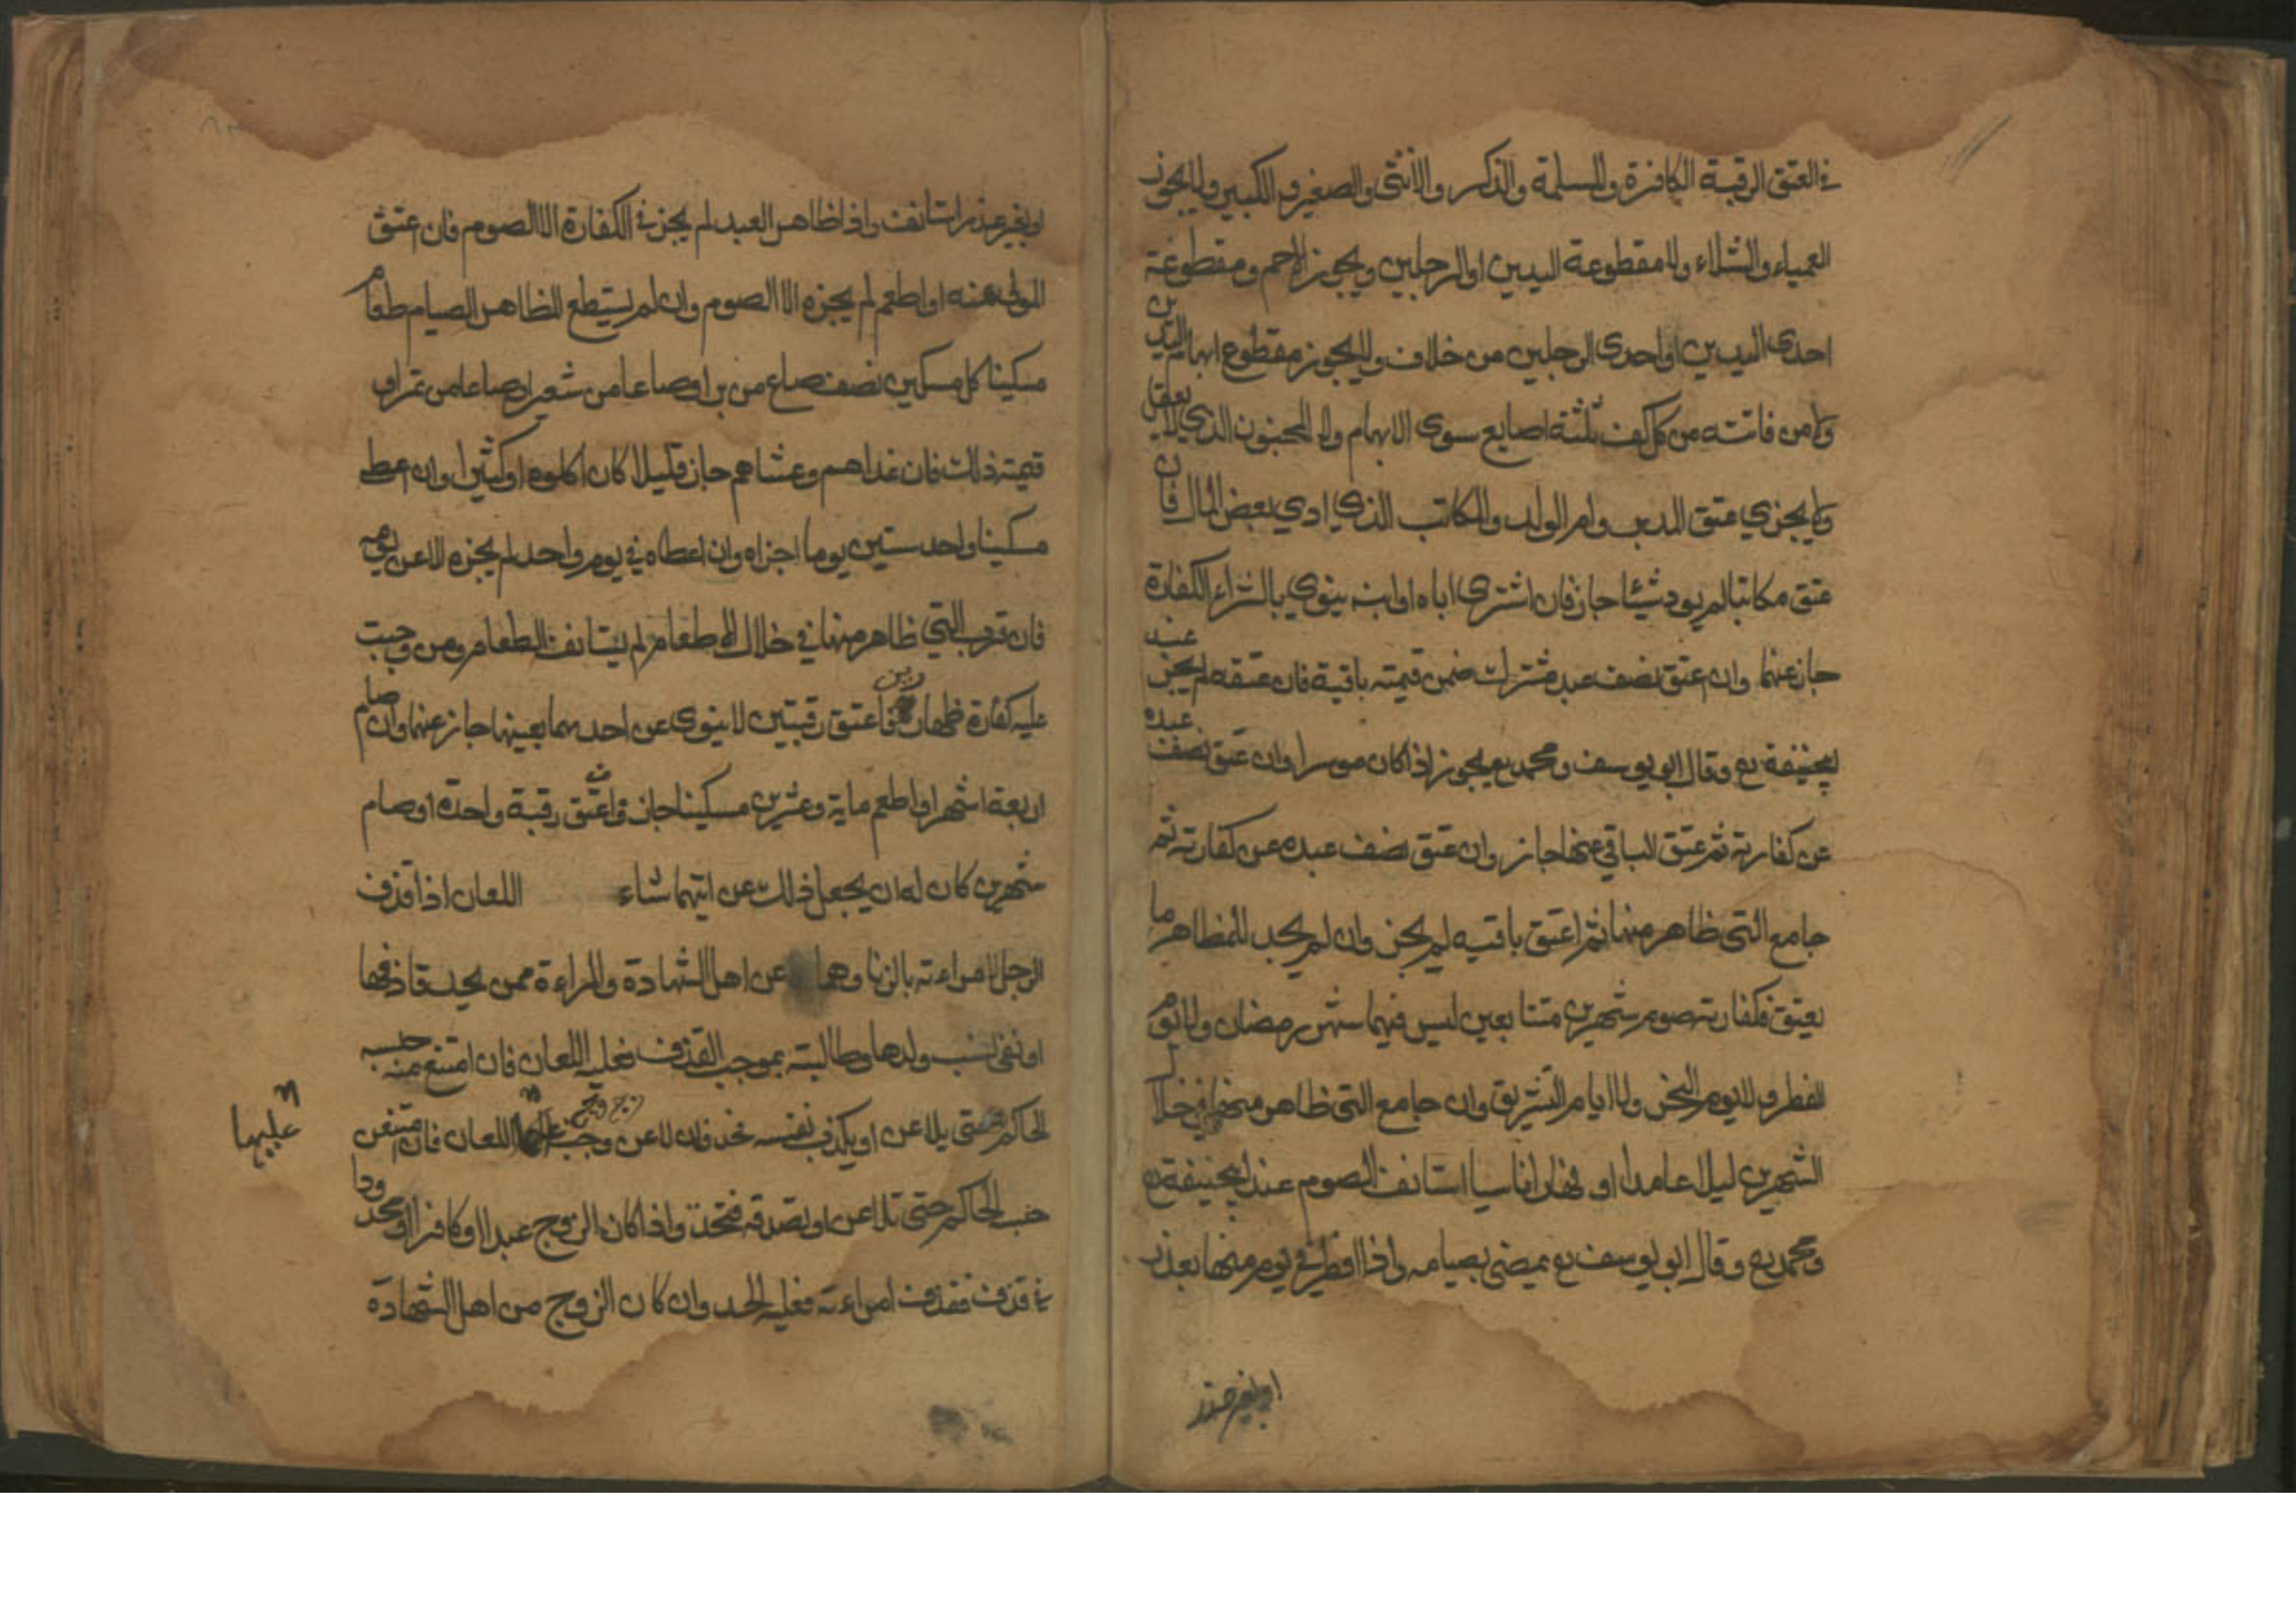 في العتق الرقبة الكافرة والمسلمة والذكر والانثى والصغير و الكبير ولا يجوز
العمياء والشلاء ولا مقطوعة اليدين او الرجلين ويجوز الاصم ومقطوعة
احدى اليدين او احدى الرجلين من خلاف ولا يجوز مقطوع ابهام اليدين
ولا من فاتته من كل كف ثلثة اصابع سوى الابهام ولا المجنون الذي لا يعقل
ولا يجزي عتق المدبر وام الولد والمكاتب الذي ادي بعض المال فان
عتق مكاتبا لم يود شيئا جاز فان اشترى اباه او ابنه ينوي بالشراء الكفارة
جاز عنها وان عتق نصف عبد مشترك ضمن قيمته باقية فان عتقه لم يجز عند
ابيحنيفة رع وقال ابو يوسف ومحمد رع يجوز اذا كان موسرا وان عتق نصف عبده
عن كفارته ثم عتق الباقي عنها جاز وان عتق نصف عبده عن كفارته ثم
جامع التى ظاهر منها ثم اعتق باقيه لم يجز وان لم يجد المظاهر ما
يعتق فكفارته صوم شهرين متتابعين ليس فيهما شهر رمضان ولا يوم
الفطر ولا يوم النحر ولا ايام التشريق وان جامع التى ظاهر منها في خلال
الشهرين ليلا عامدا او نهارا ناسيا استانف الصوم عند ابيحنيفة رع
ومحمد رع وقال ابو يوسف رع يمضى بصيامه واذا افطر في يوم منها بعذر
او بغير عذر
او بغير عذر استانف واذا ظاهر العبد لم يجز في الكفارة الا الصوم فان عتق
المولى عنه او اطعم لم يجزه الا الصوم وان لم يستطع المظاهر الصيام طعام
مسكينا كل مسكين نصف صاع من بر او صاعا من شعير او صاعا من تمر او
قيمته ذلك فان غداهم وعشاهم جاز قليلا كان اكلوه او كثيرا وان اعط
مسكينا واحد ستين يوما اجزاه وان اعطاه في يوم واحد لم يجزه الا عن يومه
فان قرب التي ظاهر منها في خلال الاطعام لم يستانف الطعام ومن وجبت
عليه كفارة ظهارين فاعتق رقبتين لا ينوى عن احدهما بعينها جاز عنهما وان صام
اربعة اشهر او اطعم ماية وعشرين مسكينا جاز وان اعتق رقبة واحدة او صام
شهرين كان له ان يجعل ذلك عن ايتهما شاء اللعان اذا قذف
الرجل امراءته بالزنا وهما عن اهل الشهادة والمراءة ممن يحد قاذفها
او نفى نسب ولدها وطالبته بموجب القذف فعليه اللعان فان امتنع منه حبسه
الحاكم حتى يلاعن او يكذب نفسه فحد فان لاعن وجب عليها اللعان فان امتنعن
عليها
حبس الحاكم حتى تلاعن او تصدقه فتحد واذا كان الزوج عبدا او كافرا او محدودا
في قذف فقذف امراءته فعليه الحد وان كان الزوج من اهل الشهادة